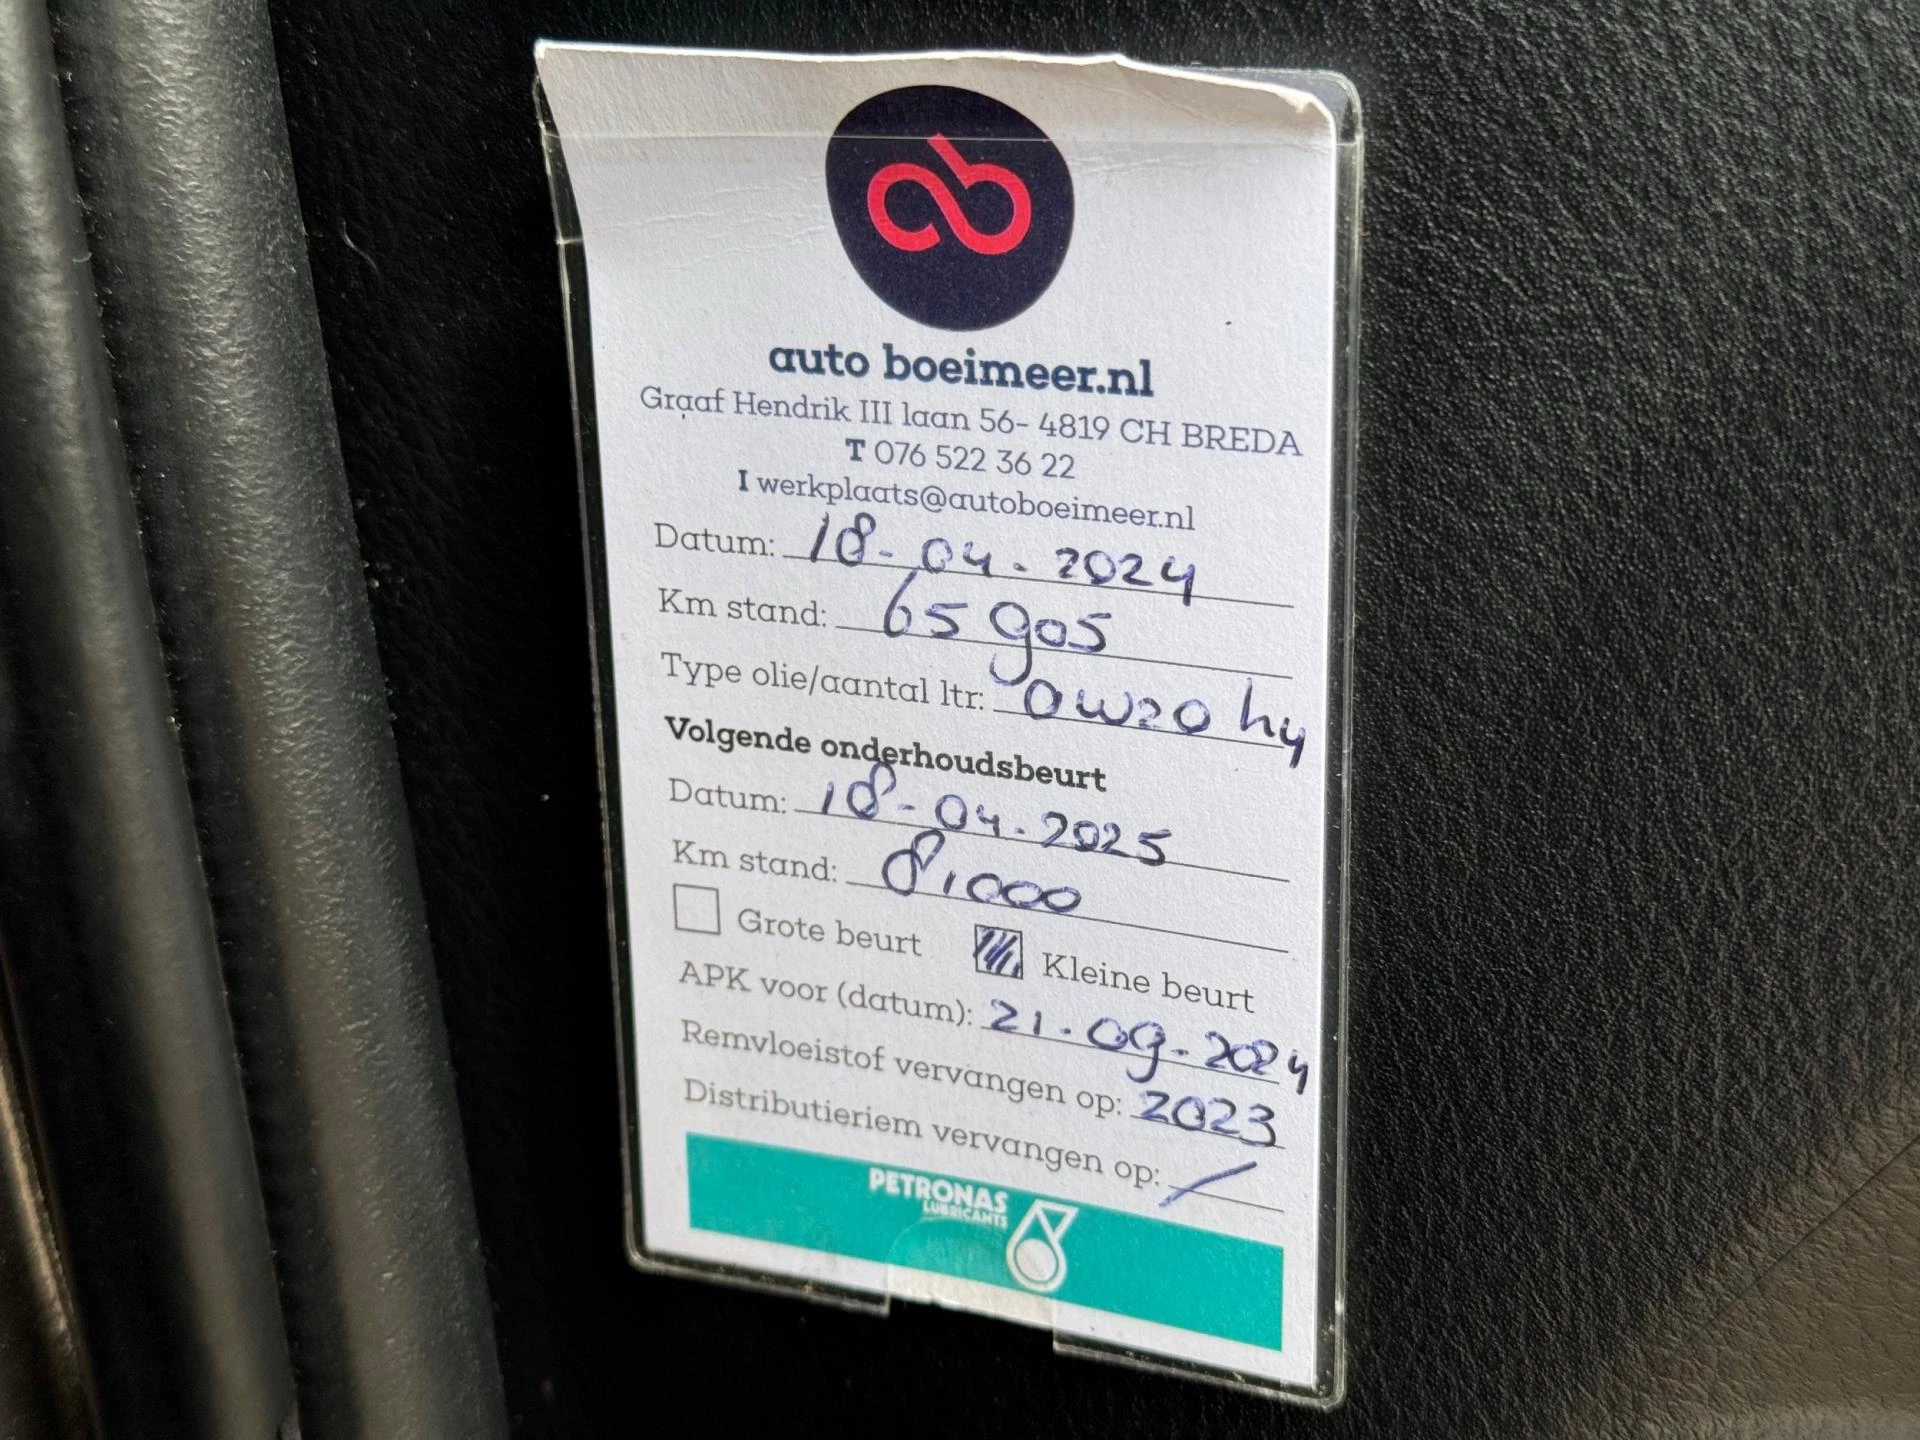 ab
auto boeimeer.nl
Graaf Hendrik III laan 56- 4819 CH BREDA
T 076 522 36 22
I werkplaats@autoboeimeer.nl
Datum: 18-04.2024
Km stand: 65905
Type olie/aantal ltr: 0W20 hy
Volgende onderhoudsbeurt
Datum: 18-04.2025
Km stand: 81000
Grote beurt Kleine beurt
APK voor (datum): 21.09.2024
Remvloeistof vervangen op: 2023
Distributieriem vervangen op: /
PETRONAS
LUBRICANTS